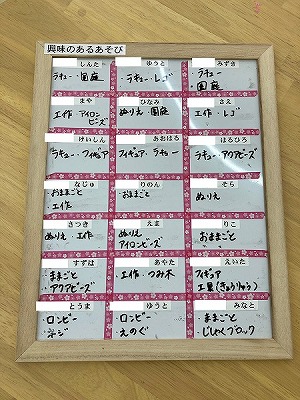 興味のあるあそび
しんた
ラキュー・園庭
ゆうと
ラキュー・レゴ
みずき
ラキュー
・園庭
まや
工作 アイロンビーズ
ひなみ
ぬりえ・園庭
さえ
工作・レゴ
けいしん
ラキュー・フィギュア
あおはる
フィギュア・ラキュー
はるひろ
ラキュー・アクアビーズ
なじゅ
おままごと
・工作
りのん
・おままごと
そら
ぬりえ
さつき
ぬりえ・工作
えま
ぬりえ
アイロンビーズ
りこ
おままごと
すずは
・ままごと
・アクアビーズ
あやた
・工作・つみ木
えいた
フィギュア
工具(きょうりゅう)
とうま
・ロンビー
・ネジ
ゆうと
・ロンビー
・えのぐ
みなと
・ままごと
・じしゃくブロック